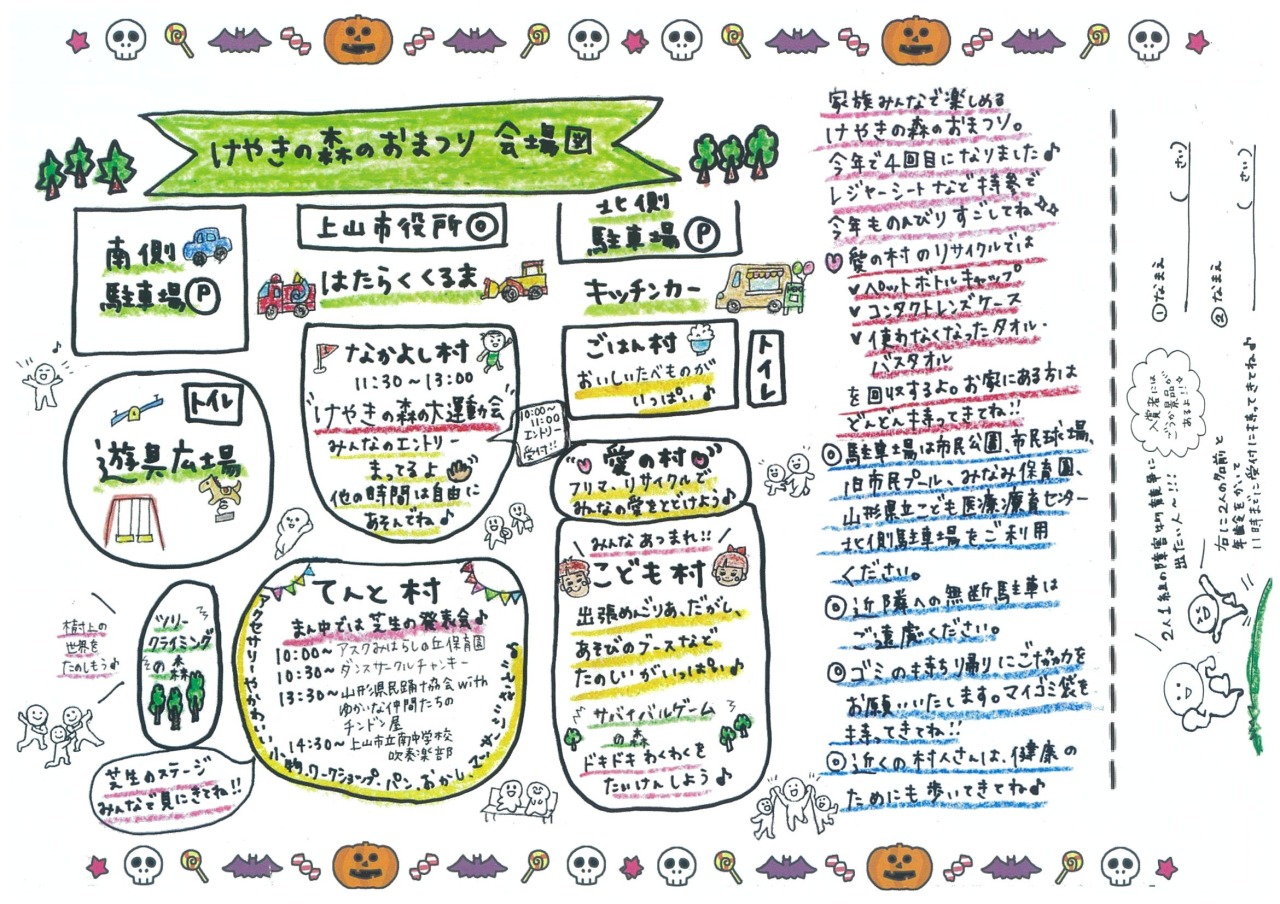 けやきの森のおまつり 会場図
南側
駐車場Ⓟ
上山市役所◎
北側
駐車場Ⓟ
はたらくくるま
キッチンカー
なかよし村
11:30～13:00
けやきの森の大運動会
みんなのエントリー
まってるよ
他の時間は自由に
あそんでね♪
10:00～
11:00
エントリー
受付!!
ごはん村
おいしいたべものが
いっぱい♪
トイレ
トイレ
遊具広場
愛の村
フリマ、リサイクルで
みんなの愛をとどけよう♪
みんなあつまれ!!
こども村
出張めんごりあ、だがし、
あそびのブースなど
たのしいがいっぱい♪
サバイバルゲーム
の森
ドキドキわくわくを
たいけんしよう♪
てんと村
まん中では芝生の発表会♪
10:00～アスクみはらしの丘保育園
10:30～ダンスサークルチャンキー
13:30～山形県民踊り協会with
ゆかいな仲間たちの
チンドン屋
14:30～上山市立南中学校
吹奏楽部
アクセサリーやかわいい小物、ワークショップ、パン、おかし、
ツリー
クライミング
の森
樹上の
世界を
たのしもう♪
芝生のステージ
みんなで見にきてね!!
家族みんなで楽しめる
けやきの森のおまつり。
今年で4回目になりました♪
レジャーシートなど持参で
今年ものんびりすごしてね
愛の村のリサイクルでは
ペットボトルキャップ
コンタクトレンズケース
使わなくなったタオル・
バスタオル
を回収するよ。お家にある方は
どんどん持ってきてね!!
◎駐車場は市民公園、市民球場、
旧市民プール、みなみ保育園、
山形県立こども医療療育センター
北側駐車場をご利用
ください。
◎近隣への無断駐車は
ご遠慮ください。
◎ゴミの持ち帰りにご協力を
お願いいたします。マイゴミ袋を
持ってきてね!!
◎近くの村人さんは、健康の
ためにも歩いてきてね♪
2人1組の障害物競争に
出たい人～!!!
入賞者には
ごうか景品が
あるよ!!
右に2人の名前と
年齢をかいて
11時までに受付に持ってきてね♪
①なまえ
( さい)
②なまえ
( さい)